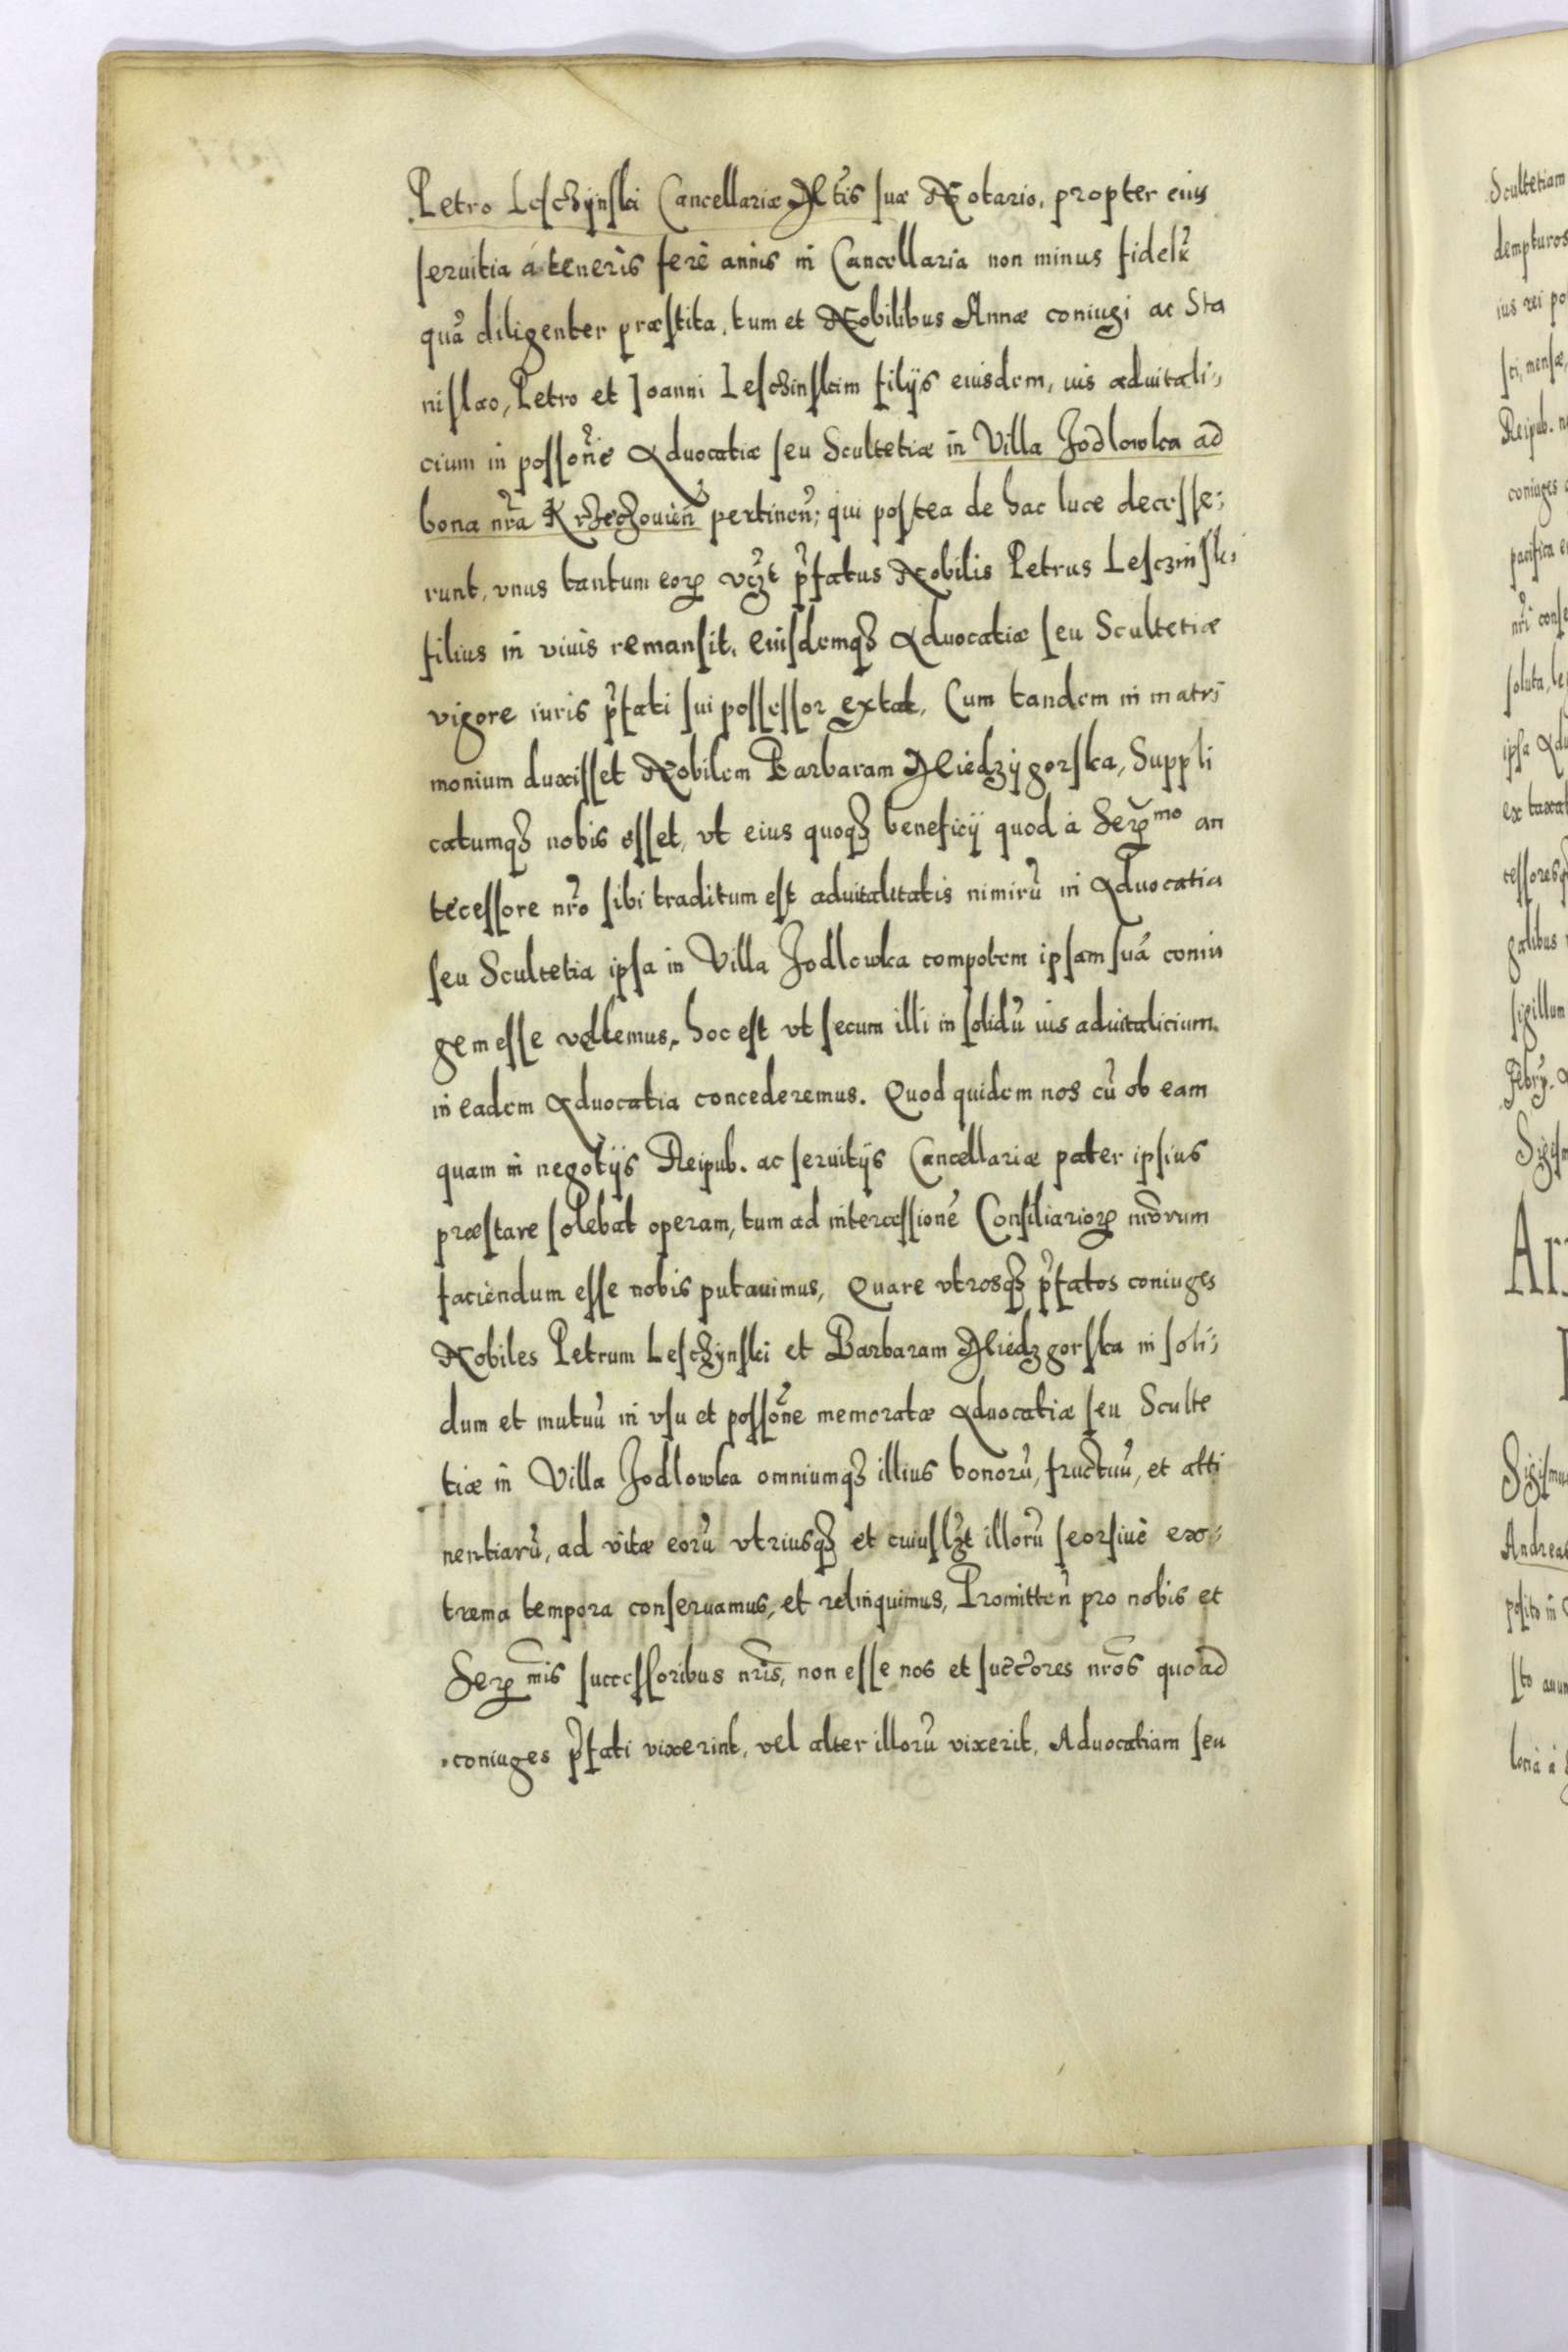 Petro Leschÿnski Cancellariæ Mtis suæ Notario, propter eius
seruitia á teneris ferè annis in Cancellaria non minus fidelr
quā diligenter præstita, tum et Nobilibus Annæ coniugi ac Sta
nislao, Petro et Joanni Leschinskim filijs eiusdem, ius aduitali-
cium in possone Aduocatiæ seu Scultetiæ in Villa Jodlowka ad
bona nra Krzeczouien pertinen; qui postea de hac luce decesse-
runt, vnus tantum eorꝝ vczt pfatus Nobilis Petrus Lesczinski
filius in viuis remansit, eiusdemqꝫ Aduocatiæ seu Scultetiæ
vigore iuris pfati sui possessor extat, Cum tandem in matri
monium duxisset Nobilem Barbaram Miedzÿgorska, Suppli
catumqꝫ nobis esset, vt eius quoqꝫ beneficij quod à Serꝝmo an
tecessore nro sibi traditum est aduitalitatis nimirū in Aduocatia
seu Scultetia ipsa in Villa Jodlowka compotem ipsam suā coniu
gem esse vellemus, hoc est vt secum illi in solidū ius aduitalicium
in eadem Aduocatia concederemus. Quod quidem nos cū ob eam
quam in negotijs Reipub. ac seruitijs Cancellariæ pater ipsius
præstare solebat operam, tum ad intercessionē Consiliariorꝝ nrorum
faciendum esse nobis putauimus, Quare vtrosqꝫ pfatos coniuges
Nobiles Petrum Leschÿnski et Barbaram Miedzgorska in soli-
dum et mutuū in vsu et possone memoratæ Aduocatiæ seu Sculte
tiæ in Villa Jodlowka omniumqꝫ illius bonorū, fructuū, et atti
nentiarū, ad vitæ eorū vtriusqꝫ et cuiuslꝫt illorū seorsiuè ex-
trema tempora conseruamus, et relinquimus, Promitten pro nobis et
Serꝝmis successoribus nris, non esse nos et succores nros quoad
coniuges pfati vixerint, vel alter illorū vixerit, Aduocatiam seu
Scultetiam
dempturos
ius rei
Reipub.
coniuges
pacifica
nri
soluta,
ipsa
sigillum
Andreas
posito in